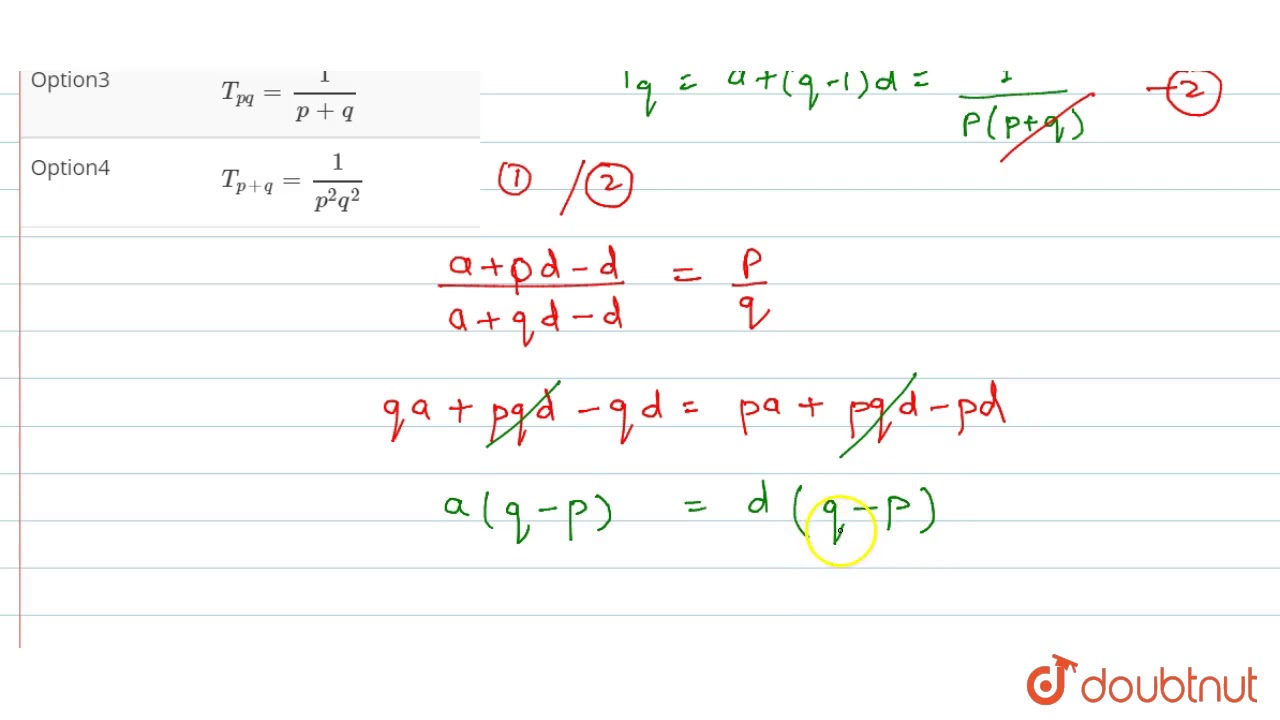 Option3 T_{pq} = \frac{1}{p + q}
T_q = a + (q - 1) d = \frac{1}{p(p + q)} - ②
Option4 T_{p+q} = \frac{1}{p^2q^2}
① / ②
\frac{a + pd - d}{a + qd - d} = \frac{p}{q}
qa + pqd - qd = pa + pqd - pd
a (q - p) = d (q - p)
doubtnut